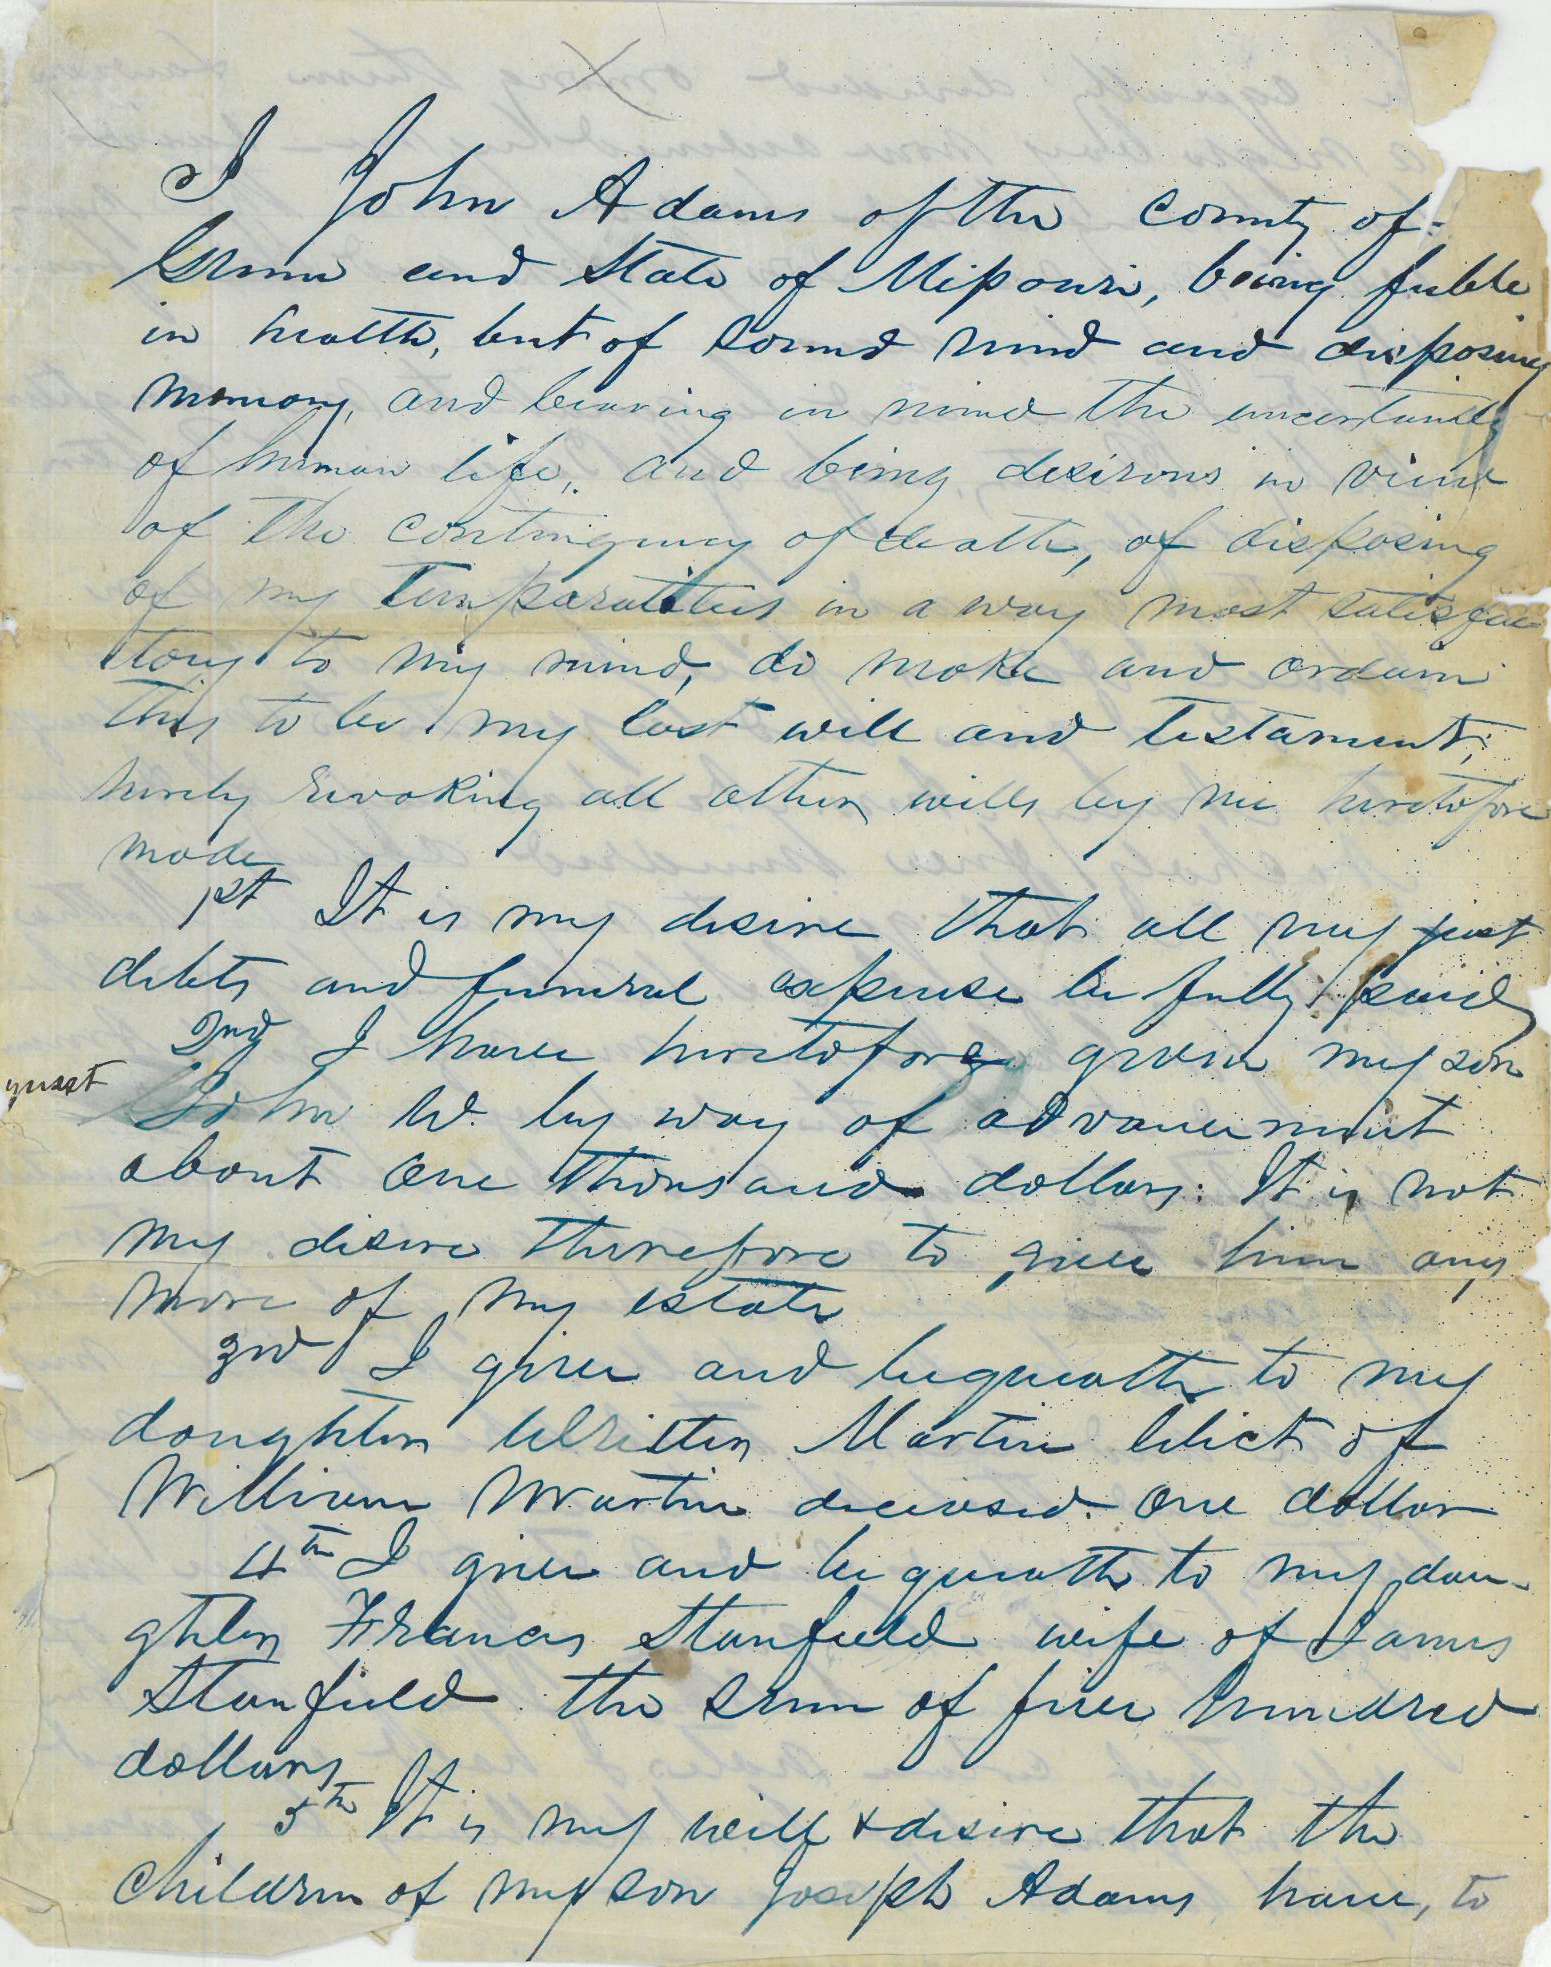 I John Adams of the county of
Green and State of Missouri, being feeble
in health, but of sound mind and disposing
memory, and bearing in mind the uncertainty
of human life, and being desirous in view
of the contingency of death, of disposing
of my temporalities in a way most satisfac
tory to my mind, do make and ordain
this to be my last will and testament,
hereby revoking all other wills by me heretofore
made
1st It is my desire that all my just
debts and funeral expense be fully paid
2nd I have heretofore given my son
John W. by way of advancement
about One thousand dollars. It is not
my desire therefore to give him any
more of my estate
3rd I give and bequeath to my
daughter Martin relict of
William Martin deceased. One dollar
4th I give and bequeath to my dau-
ghter Frances Stanfield wife of James
Stanfield the sum of five hundred
dollars
5th It is my will & desire that the
children of my son Joseph Adams have, to